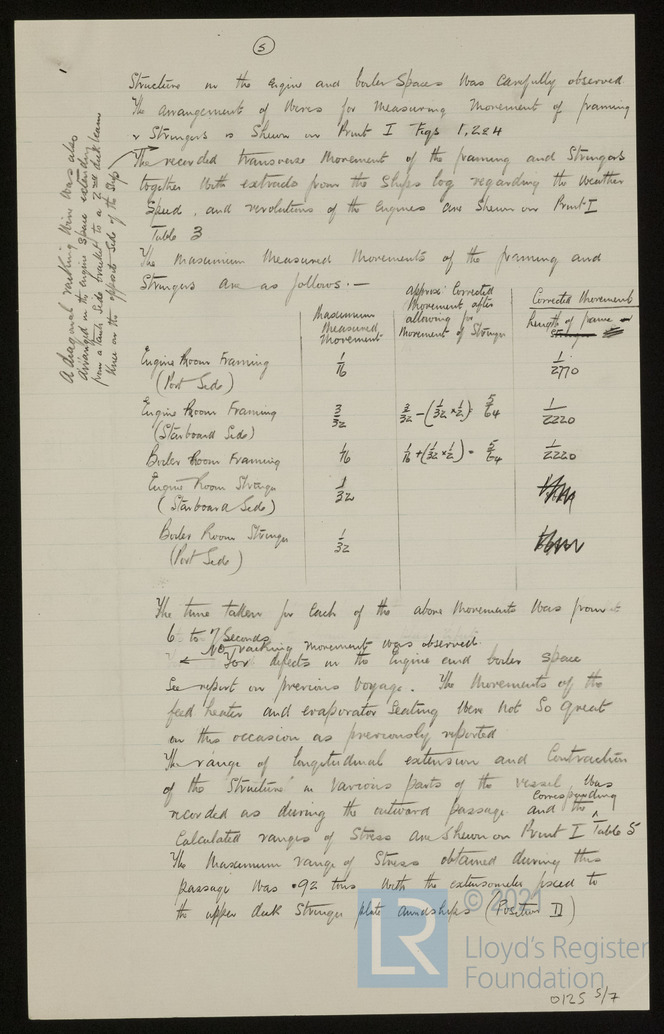 5
Structure in the Engine and boiler Spaces was carefully observed.
The arrangement of Wires for measuring movement of framing
& Stringers is Shewn on Print I Figs 1, 2 & 4
The recorded transverse movement of the framing and Stringers
together with extracts from the Ships log regarding the weather
Speed, and revolutions of the Engines are Shewn on Print I
Table 3
A diagonal racking wire was also
arranged in the engine space extending
from a tank side bracket to a deck beam
knee on the opposite side of the Ship
The maximum measured movements of the framing and
Stringers are as follows. —
Maximum Measured Movement
Approx: Corrected Movement after allowing for Movement of Stringer
Corrected Movement Length of frame
Engine Room Framing (Port Side) 1/16 1/2770
Engine Room Framing (Starboard Side) 3/32 3/32 - (1/32 x 1/2) = 5/64 1/2220
Boiler Room Framing 1/16 1/16 + (1/32 x 1/2) = 5/64 1/2220
Engine Room Stringer (Starboard Side) 1/32
Boiler Room Stringer (Port Side) 1/32
The time taken for each of the above movements was from
6 to 7 Seconds
No racking movement was observed.
For defects in the Engine and boiler space
See report on previous voyage. The movements of the
feed heater and evaporator Seating were not So great
on this occasion as previously reported
The range of longitudinal extension and Contraction
of the Structure in various parts of the vessel was
recorded as during the outward passage and the corresponding
Calculated ranges of Stress are Shewn on Print I Table 5
The Maximum range of Stress obtained during this
passage was .92 tons with the extensometer fixed to
the upper deck Stringer plate amidships (Position II)
© 2021
LR
Lloyd's Register
Foundation
0125 5/7